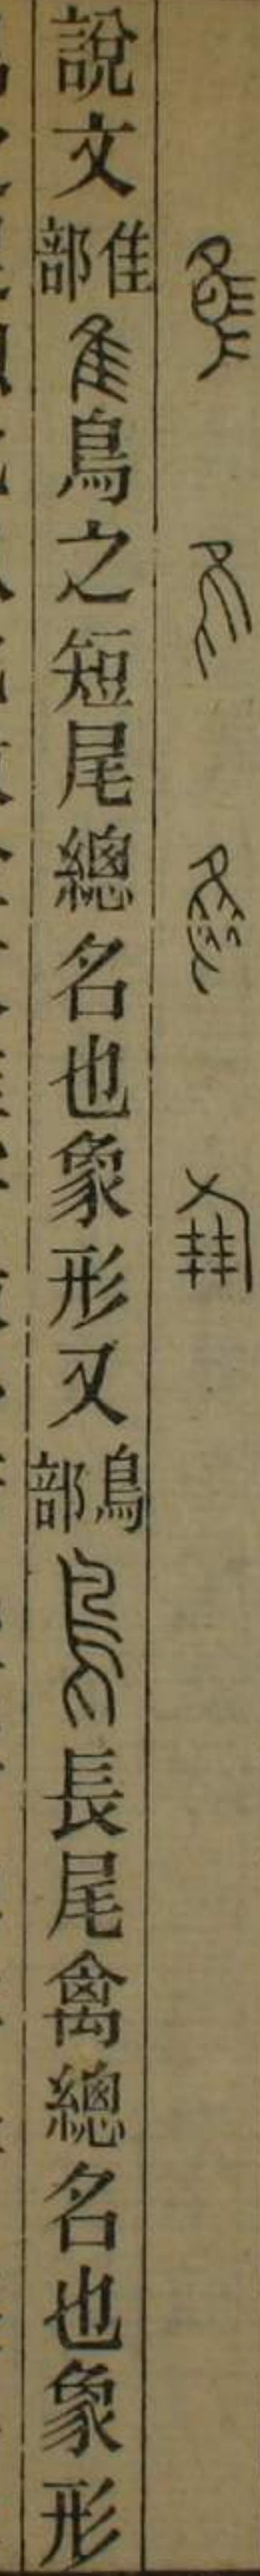 說文隹部隹鳥之短尾總名也象形又鳥部鳥長尾禽總名也象形